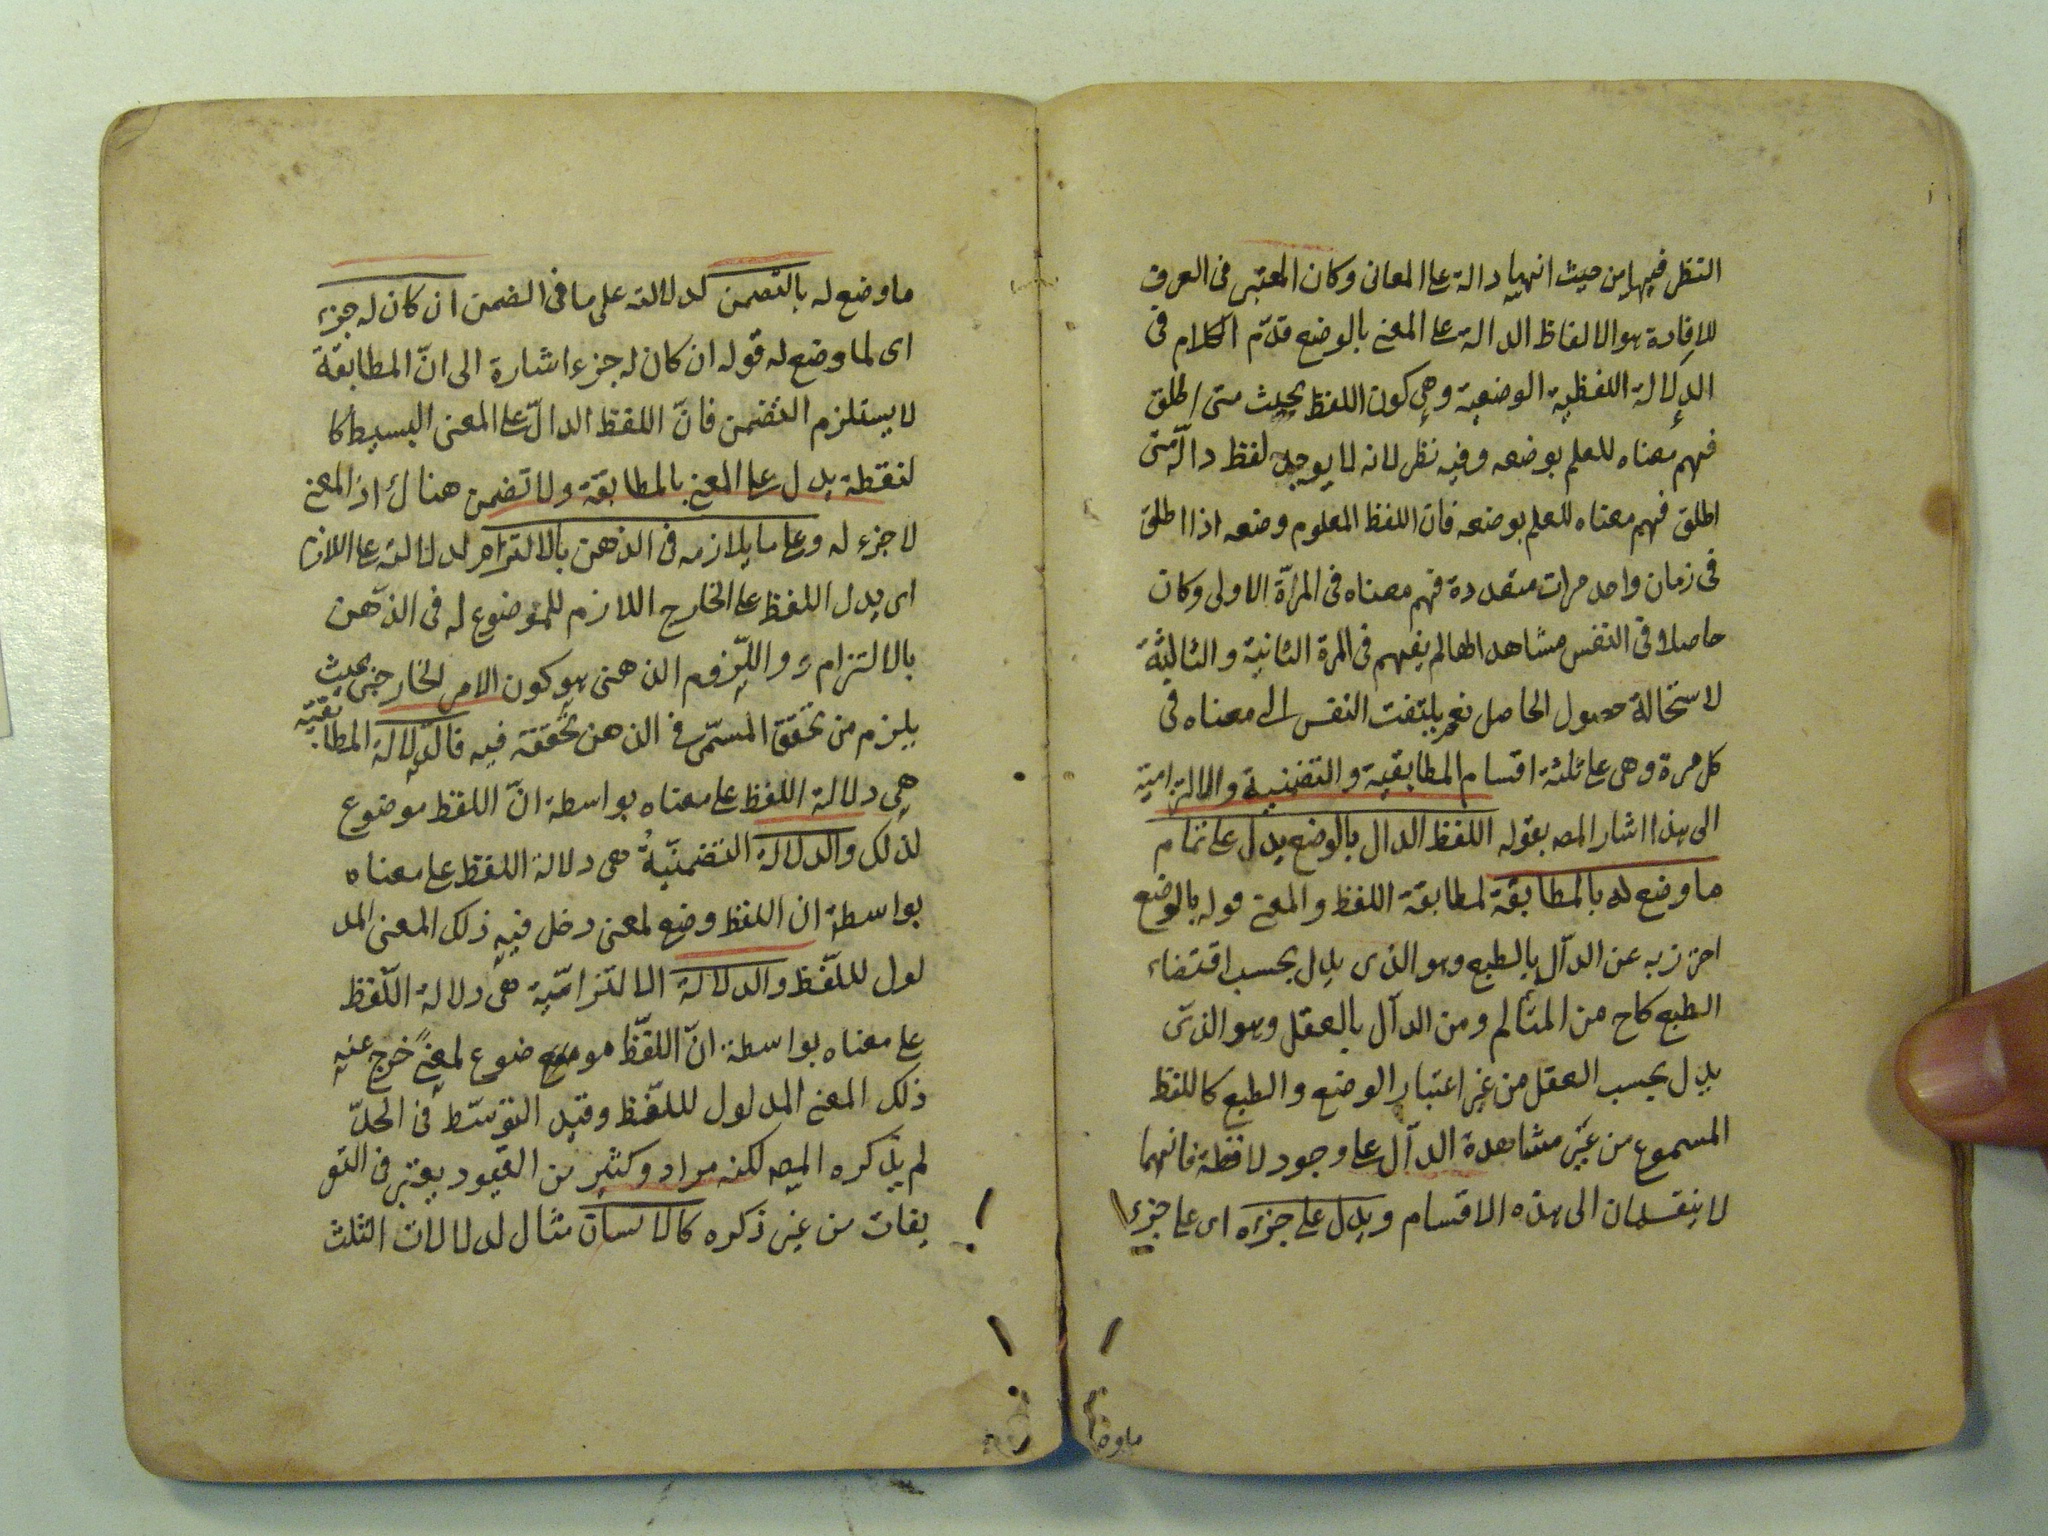 النظر فيها من حيث انها دالة على المعانى وكان المعتبر فى العرف
للافادة هو الالفاظ الدالة على المعنى بالوضع قدّم الكلام فى
الدلالة اللفظية الوضعية وهى كون اللفظ بحيث متى اطلق
فهم معناه للعلم بوضعه وفيه نظر لانه لا يوجد لفظ دالّ متى
اطلق فهم معناه للعلم بوضعه فان اللفظ المعلوم وضعه اذا اطلق
فى زمان واحد مرات متعددة فهم معناه فى المرّة الاولى وكان
حاصلا فى النفس مشاهدا لها لم يفهم فى المرة الثانية والثالثة
لاستحالة حصول الحاصل نعم يلتفت النفس الى معناه فى
كل مرة وهى على ثلثة اقسام المطابقية والتضمنية والالتزامية
الى هذا اشار المص بقوله اللفظ الدال بالوضع يدل على تمام
ما وضع له بالمطابقة لمطابقة اللفظ والمعنى قوله بالوضع
احترز به عن الدآل بالطبع وهو الذى يدل بحسب اقتضاء
الطبع كاح من المتألم ومن الدآل بالعقل وهو الذى
يدل بحسب العقل من غير اعتبار الوضع والطبع كاللفظ
المسموع من غير مشاهدة الدآل على وجود لافظة فانهما
لا ينقسمان الى هذه الاقسام ويدل على جزءه اى على جزء
ماوضع
ما وضع له بالتضمن كدلالته على ما فى الضمن ان كان له جزء
اى لما وضع له قوله ان كان له جزء اشارة الى انّ المطابقة
لا يستلزم التضمن فانّ اللفظ الدالّ على المعنى البسيط كا
لنقطة يدل على المعنى بالمطابقة ولا تضمن هناك اذ المعنى
لا جزء له وعلى ما يلازمه فى الذهن بالالتزام لدلالته على اللازم
اى يدل اللفظ على الخارج اللازم للموضوع له فى الذهن
بالالتزام واللزوم الذهنى هو كون الامر الخارجى بحيث
يلزم من تحقق المسمّى فى الذهن تحققه فيه فالدلالة المطابقيّة
هى دلالة اللفظ على معناه بواسطة انّ اللفظ موضوع
لذلك والدلالة التضمنيّة هى دلالة اللفظ على معناه
بواسطة ان اللفظ وضع لمعنى دخل فيه ذلك المعنى المد
لول لللفظ والدلالة الالتزاميّة هى دلالة اللفظ
على معناه بواسطة انّ اللفظ موضوع لمعنىً خرج عنه
ذلك المعنى المدلول لللفظ وقيد التوسّط فى الحلّ
لم يذكره المص لكنه مراد وكثير من القيود يعتبر فى التو
يفات من غير ذكره كالانسان مثال لدلالات الثلث